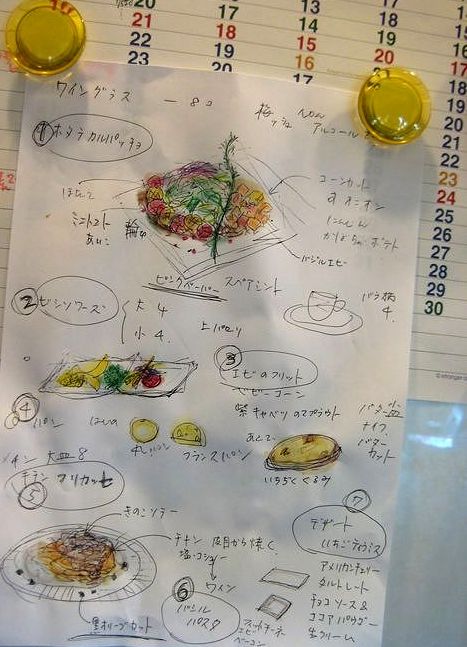 20
21
22
23
18
19
20
15
16
17
13
14
15
16
17
18
19
20
17
18
19
20
21
22
23
24
25
26
27
28
29
30
ワイングラス ー 80
アルコール
① ホタテカルパッチョ
ほたて
ミニトマト
コーンカット
オニオン
にんじん
かぼちゃ ポテト
バジルエビー
ピンクペーパー スペアミント
② ビシソワーズ
大 4
小 4.
上 パセリ
バラ柄
4.
③ エビのフリット
ベビーコーン
紫キャベツのスプラウト
④ パン
丸パン
フランスパン
いちぢくくるみ
バター皿
ナイフ
バター
カット
メイン 大皿 8
⑤ チキン フリカッセ
きのこソテー
チキン 皮目から焼く
塩・コショー
ワイン
黒オリーブカット
⑥ バジル
パスタ
エビ
ベーコン
⑦ デザート
いちごティラミス
アメリカンチェリー
タルトレート
チョコソース&
ココアパウダー
生クリーム